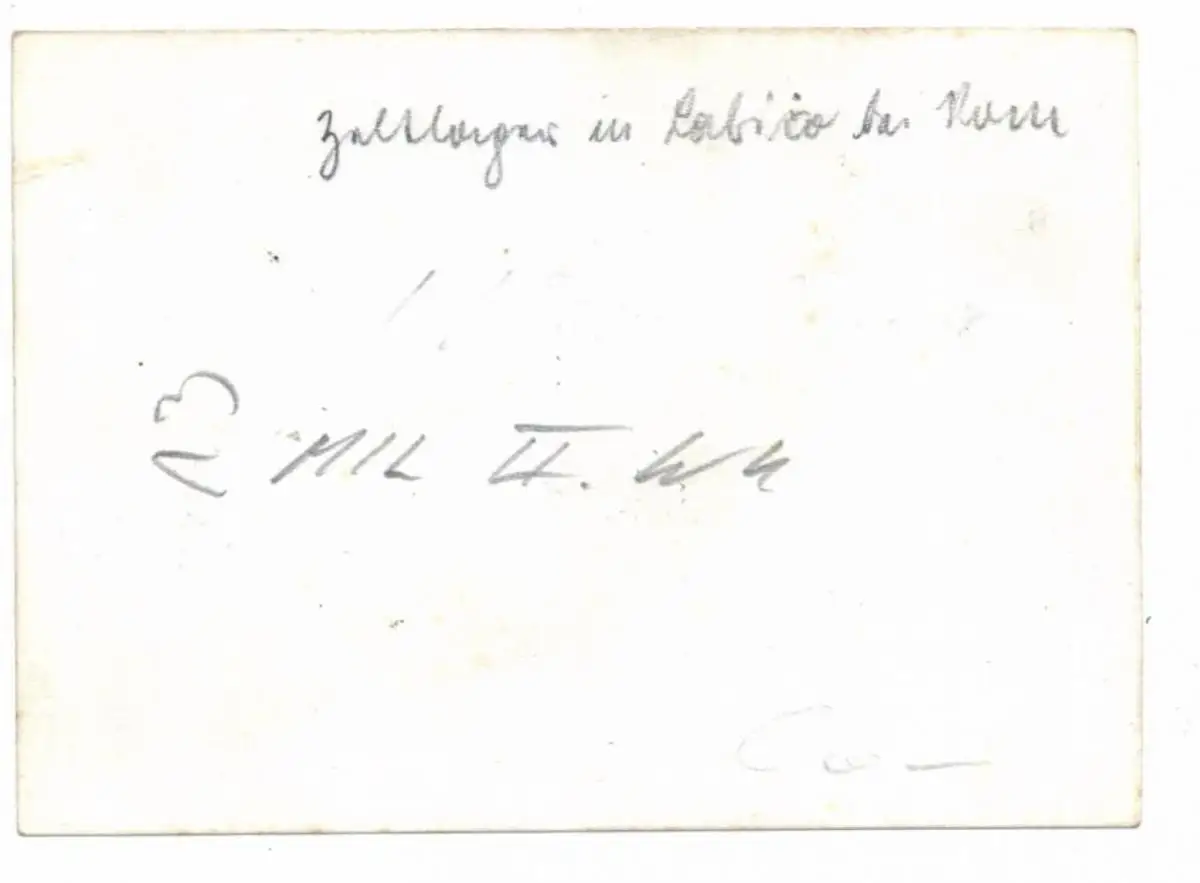 Zeltlager in Labico bei Rom
13
MIL II. WK